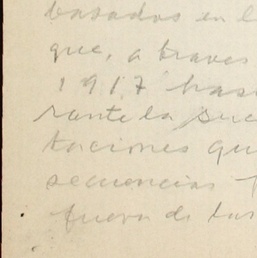 basados en l
que, a traves
1917 has
rante la suc
taciones qu
secuencias
fuera de las